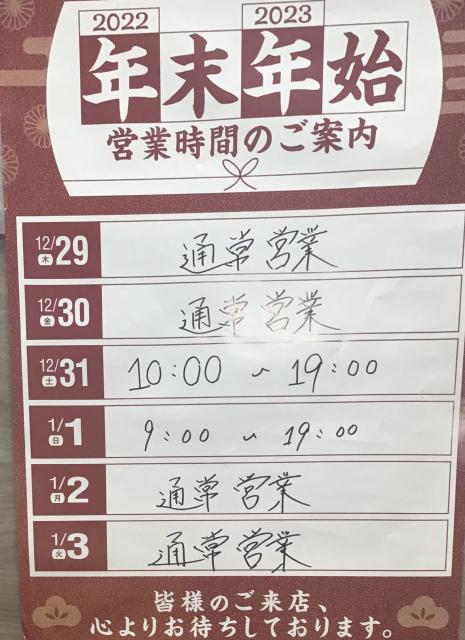 2022 2023
年末年始
営業時間のご案内
12/29 木 通常営業
12/30 金 通常営業
12/31 土 10:00 ~ 19:00
1/1 日 9:00 ~ 19:00
1/2 月 通常営業
1/3 火 通常営業
皆様のご来店、
心よりお待ちしております。